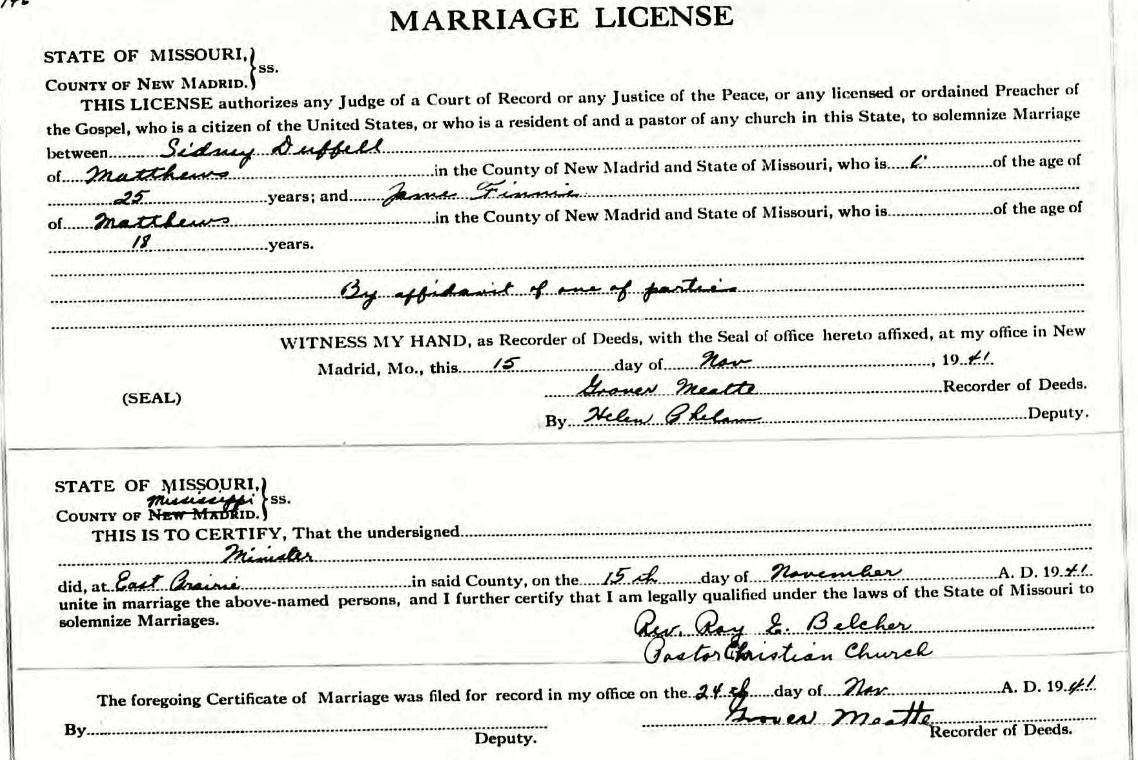 MARRIAGE LICENSE
STATE OF MISSOURI, } ss.
COUNTY OF NEW MADRID. }
THIS LICENSE authorizes any Judge of a Court of Record or any Justice of the Peace, or any licensed or ordained Preacher of
the Gospel, who is a citizen of the United States, or who is a resident of and a pastor of any church in this State, to solemnize Marriage
between Sidney Duffell
of Matthews in the County of New Madrid and State of Missouri, who is of the age of
25 years; and Finnie
of Matthews in the County of New Madrid and State of Missouri, who is of the age of
18 years.
By affidavit of one of parties
WITNESS MY HAND, as Recorder of Deeds, with the Seal of office hereto affixed, at my office in New
Madrid, Mo., this 15 day of Nov, 1941
(SEAL) Grover Meatte Recorder of Deeds.
By Helen Phelan Deputy.
STATE OF MISSOURI, } ss.
Mississippi
COUNTY OF NEW MADRID. }
THIS IS TO CERTIFY, That the undersigned
Minister
did, at East Prairie in said County, on the 15th day of November A. D. 1941
unite in marriage the above-named persons, and I further certify that I am legally qualified under the laws of the State of Missouri to
solemnize Marriages.
Rev. Roy E. Belcher
Pastor Christian Church
The foregoing Certificate of Marriage was filed for record in my office on the 24th day of Nov A. D. 1941
Grover Meatte
By Deputy. Recorder of Deeds.